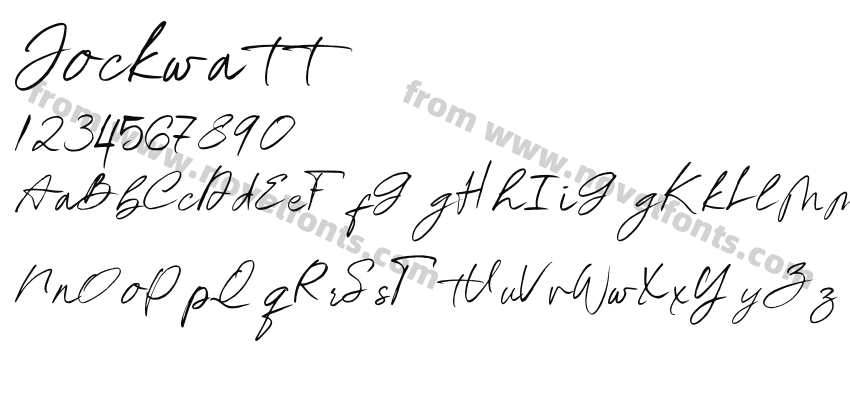 Jockwatt
1234567890
AaBbCcDdEeFfGgHhIiGgKkLlMm
NnOoPpQqRrSsTtUuVvWwXxYyZz
from www.novelfonts.com
from www.novelfonts.com